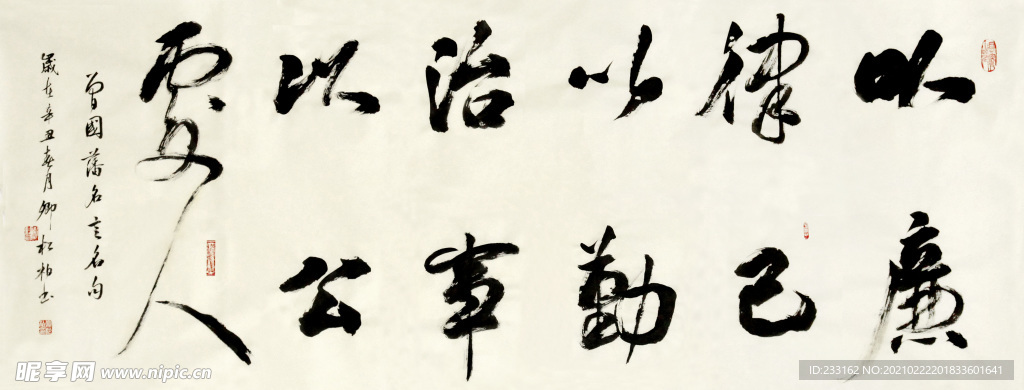 以廉
律己
以勤
治事
以公
處人
曾國藩名言名句
歲在辛丑春月卿松柏书
昵享网 www.nipic.cn
ID:233162 NO:20210222201833601641